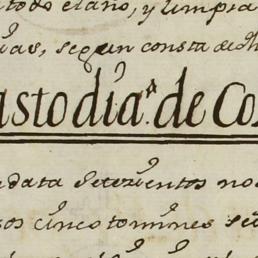 todo el año, y limpia
uias, segun consta de dh
asto día.ª de Co
edata setezientos no
sos cinco tomines se